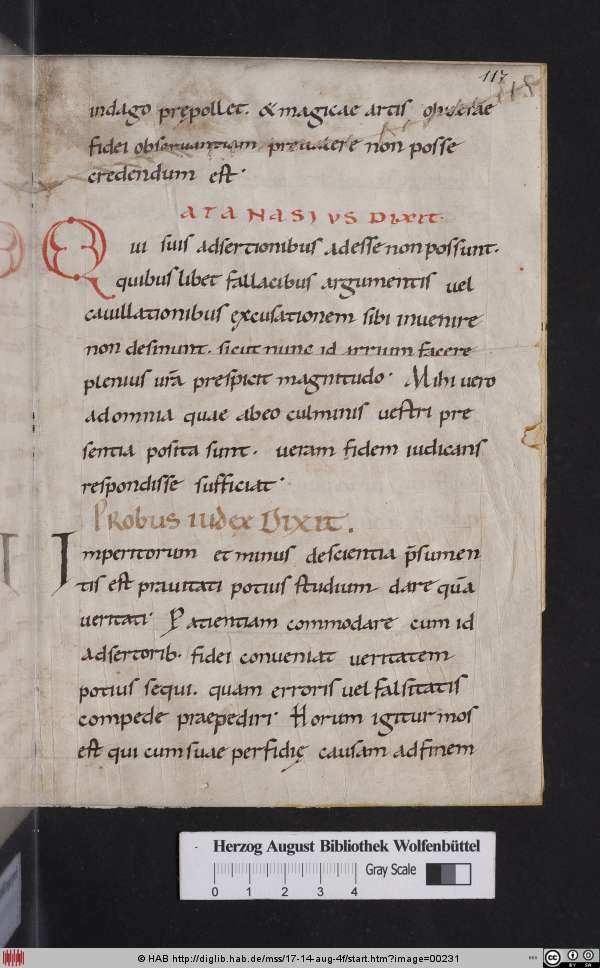 117
118
indago prępollet. & magicae artis
fidei observantiam prevalere non posse
credendum est.
ATANASIVS DIXIT.
Qui suis adsertionibus adesse non possunt.
quibus libet fallacibus argumentis vel
cavillationibus excusationem sibi invenire
non desinunt. sicut nunc id arrium facere
plenius ur̄a prespicit magnitudo. Mihi vero
ad omnia quae abeo culminis vestri pre
sentia posita sunt. veram fidem iudicans
respondisse sufficiat.
PROBUS IUDEX DIXIT.
Imperitorum et minus descientia p̄sumen
tis est pravitati potius studium dare quā
veritati. Patientiam commodare cum id
adsertorib. fidei conveniat veritatem
potius sequi. quam erroris vel falsitatis
compede praepediri. Horum igitur mos
est qui cum suae perfidię causam ad finem
Herzog August Bibliothek Wolfenbüttel
Gray Scale
0 1 2 3 4
© HAB http://diglib.hab.de/mss/17-14-aug-4f/start.htm?image=00231
CC BY SA